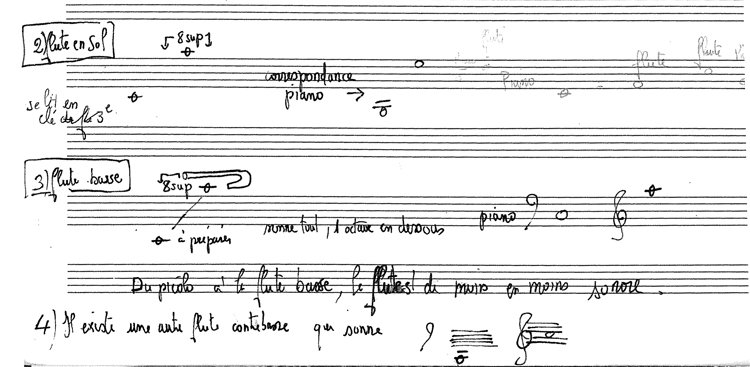 2) flute en sol
8 sup
correspondance
piano →
se lit en
clé de
flûte
Piano
flûte
flûte
3) flute basse
8 sup
à préparer
sonne tout, 1 octave en dessous
piano
Du picolo à la flute basse, la flute est de moins en moins sonore.
4) Il existe une autre flute contrebasse qui sonne